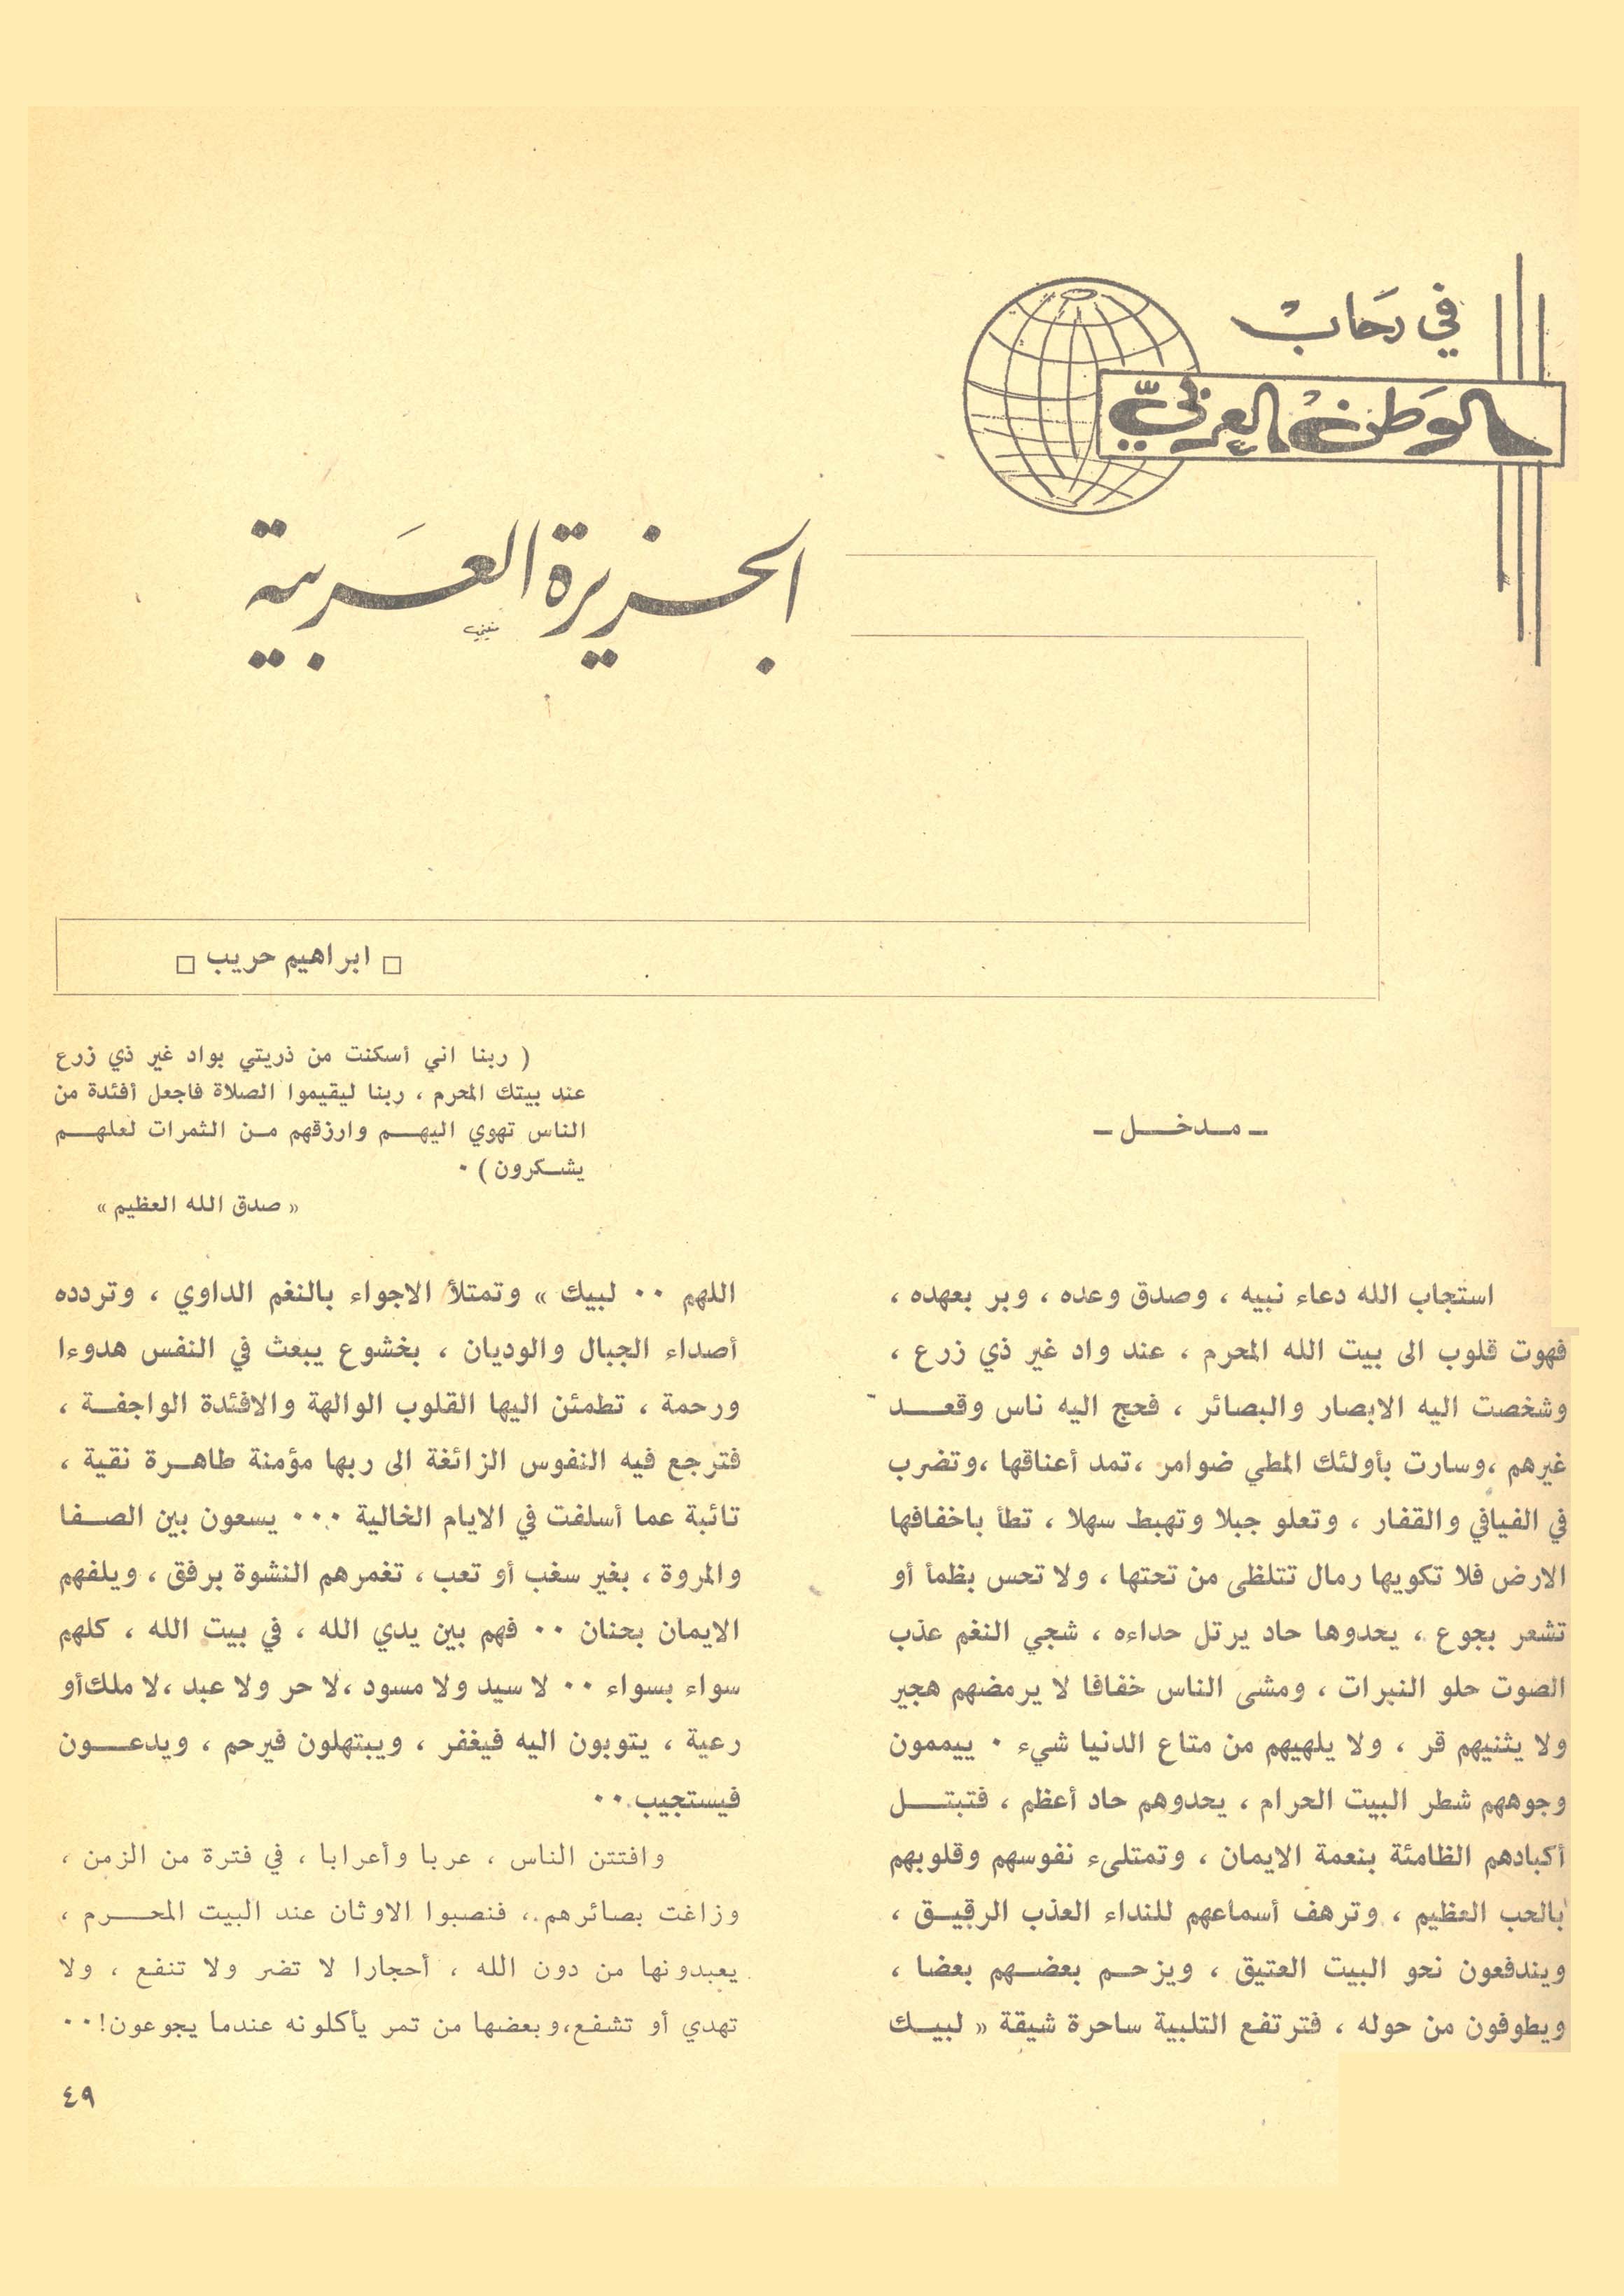 في رحاب
الوطن العربي
الجزيرة العربية
□ ابراهيم حريب □
( ربنا اني أسكنت من ذريتي بواد غير ذي زرع
عند بيتك المحرم ، ربنا ليقيموا الصلاة فاجعل أفئدة من
الناس تهوي اليهم وارزقهم من الثمرات لعلهم
يشكرون ) ٠
« صدق الله العظيم »
ـ مدخل ـ
استجاب الله دعاء نبيه ، وصدق وعده ، وبر بعهده ،
فهوت قلوب الى بيت الله المحرم ، عند واد غير ذي زرع ،
وشخصت اليه الابصار والبصائر ، فحج اليه ناس وقعد
غيرهم ،وسارت بأولئك المطي ضوامر ،تمد أعناقها ،وتضرب
في الفيافي والقفار ، وتعلو جبلا وتهبط سهلا ، تطأ باخفافها
الارض فلا تكويها رمال تتلظى من تحتها ، ولا تحس بظمأ أو
تشعر بجوع ، يحدوها حاد يرتل حداءه ، شجي النغم عذب
الصوت حلو النبرات ، ومشى الناس خفافا لا يرمضهم هجير
ولا يثنيهم قر ، ولا يلهيهم من متاع الدنيا شيء ٠ ييممون
وجوههم شطر البيت الحرام ، يحدوهم حاد أعظم ، فتبتل
أكبادهم الظامئة بنعمة الايمان ، وتمتلىء نفوسهم وقلوبهم
بالحب العظيم ، وترهف أسماعهم للنداء العذب الرقيق ،
ويندفعون نحو البيت العتيق ، ويزحم بعضهم بعضا ،
ويطوفون من حوله ، فترتفع التلبية ساحرة شيقة « لبيك
اللهم ٠٠ لبيك » وتمتلأ الاجواء بالنغم الداوي ، وتردده
أصداء الجبال والوديان ، بخشوع يبعث في النفس هدوءا
ورحمة ، تطمئن اليها القلوب الوالهة والافئدة الواجفة ،
فترجع فيه النفوس الزائغة الى ربها مؤمنة طاهرة نقية ،
تائبة عما أسلفت في الايام الخالية ٠٠٠ يسعون بين الصفا
والمروة ، بغير سغب أو تعب ، تغمرهم النشوة برفق ، ويلفهم
الايمان بحنان ٠٠ فهم بين يدي الله ، في بيت الله ، كلهم
سواء بسواء ٠٠ لا سيد ولا مسود ،لا حر ولا عبد ،لا ملك أو
رعية ، يتوبون اليه فيغفر ، ويبتهلون فيرحم ، ويدعون
فيستجيب ٠٠
وافتتن الناس ، عربا وأعرابا ، في فترة من الزمن ،
وزاغت بصائرهم ، فنصبوا الاوثان عند البيت المحرم ،
يعبدونها من دون الله ، أحجارا لا تضر ولا تنفع ، ولا
تهدي أو تشفع،وبعضها من تمر يأكلونه عندما يجوعون!٠٠
٤٩